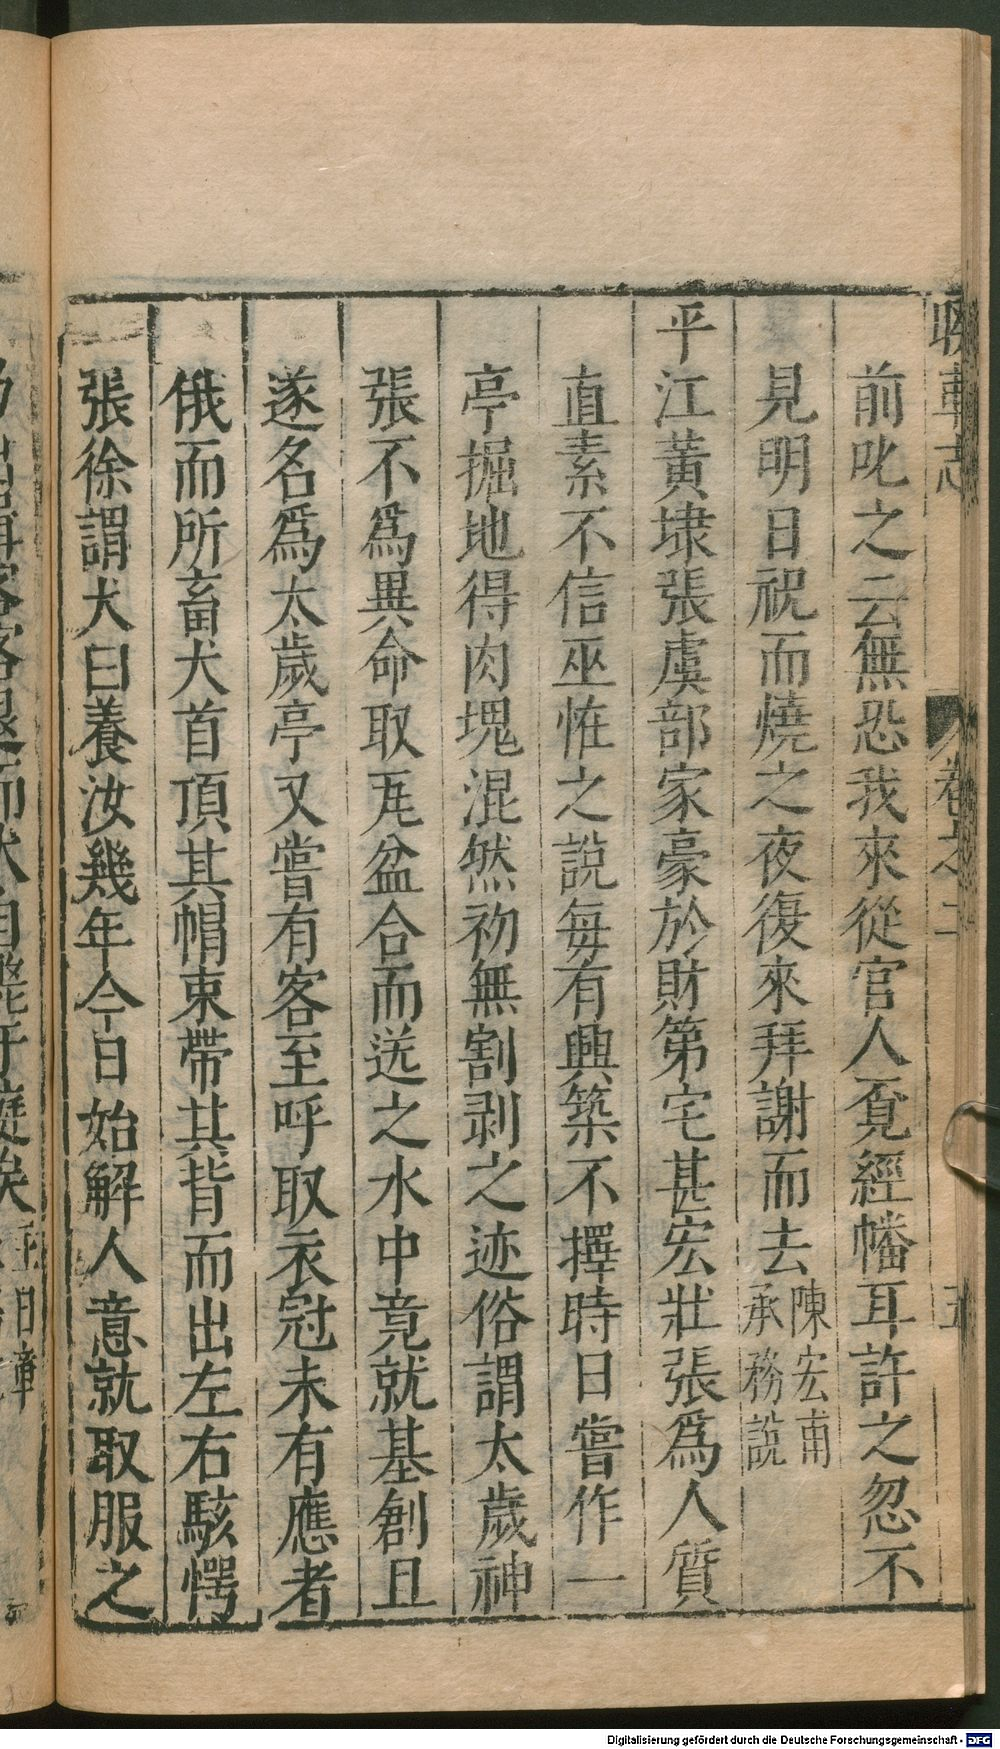 睽車志
卷之二
五
前叱之云無恐我來從官人覔經幡耳許之忽不
見明日祝而燒之夜復來拜謝而去陳宏甫
承務說
平江黃埭張虞部家豪於財第宅甚宏壯張為人質
直素不信巫恠之說每有興築不擇時日嘗作一
亭掘地得肉塊混然初無割剥之迹俗謂太歲神
張不為異命取瓦盆合而送之水中竟就基創且
遂名為太歲亭又嘗有客至呼取衣冠未有應者
俄而所畜犬首頂其帽束帶其背而出左右駭愕
張徐謂犬曰養汝幾年今日始解人意就取服之
Digitalisierung gefördert durch die Deutsche Forschungsgemeinschaft - DFG